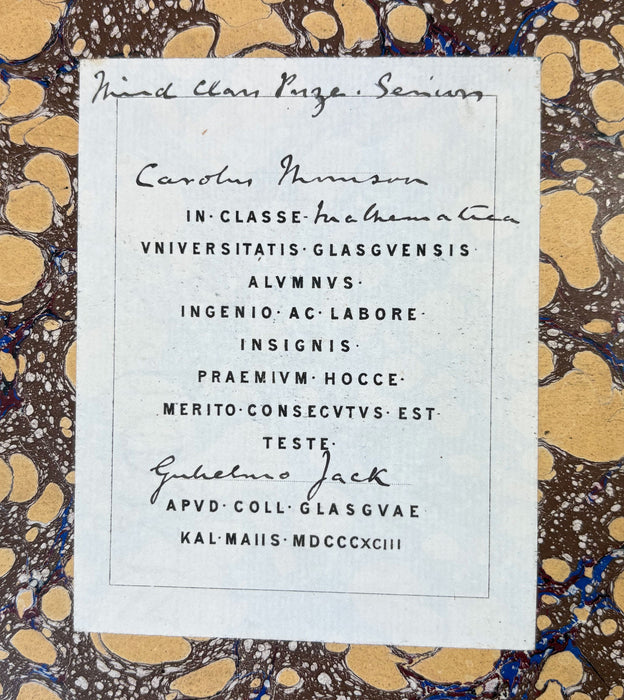 Third Class Prize. Seniors
Carolus Thomson
IN·CLASSE·Mathematica
VNIVERSITATIS·GLASGVENSIS·
ALVMNVS·
INGENIO·AC·LABORE·
INSIGNIS·
PRAEMIVM·HOCCE·
MERITO·CONSECVTVS·EST
TESTE·
Gulielmo Jack
APVD·COLL·GLASGVAE
KAL·MAIIS·MDCCCXCIII